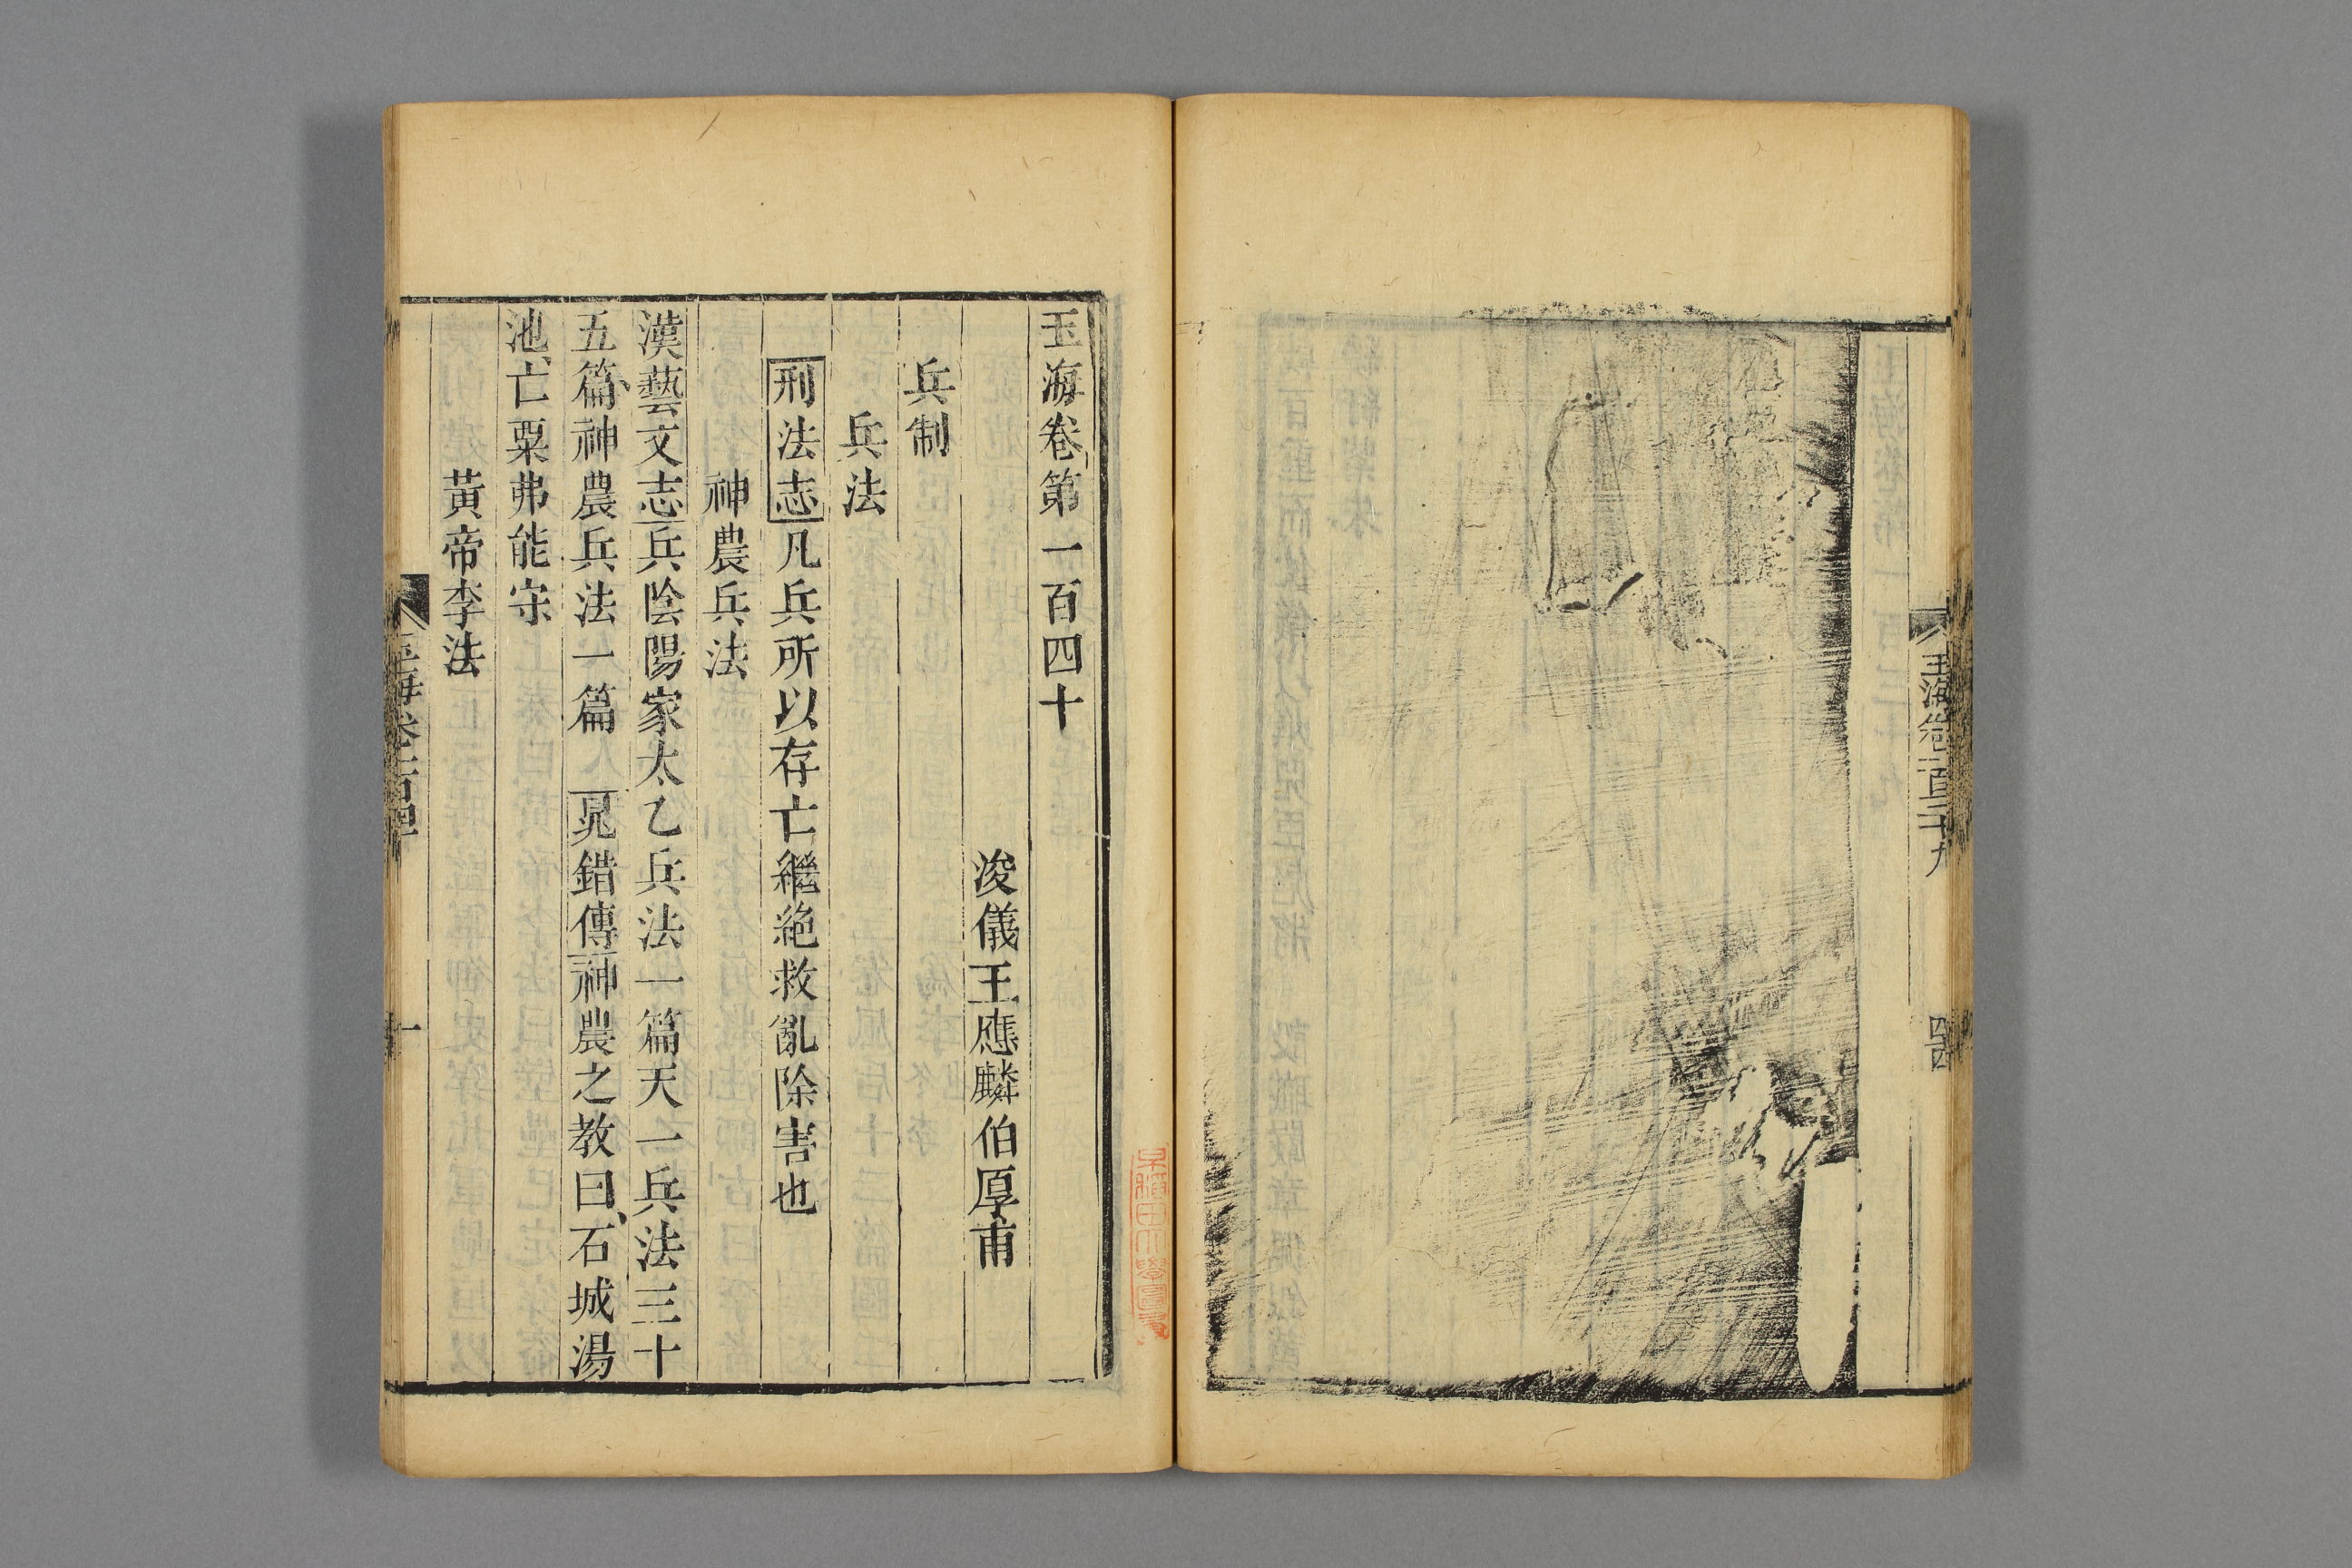 玉海卷一百三十九
四四
玉海卷第一百四十
浚儀王應麟伯厚甫
兵制
兵法
刑法志凡兵所以存亡繼絶救亂除害也
神農兵法
漢藝文志兵陰陽家太乙兵法一篇天一兵法三十
五篇神農兵法一篇 晁錯傳神農之教曰石城湯
池亡粟弗能守
黃帝李法
一
早稲田大學圖書